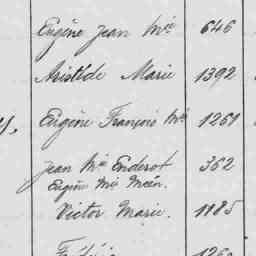 Eugène Jean Mie 646
Aristide Marie 1392
Eugène François Mie 1261
Jean Mie Enderot 362
Eugène Mie Méen.
Victor Marie. 1185